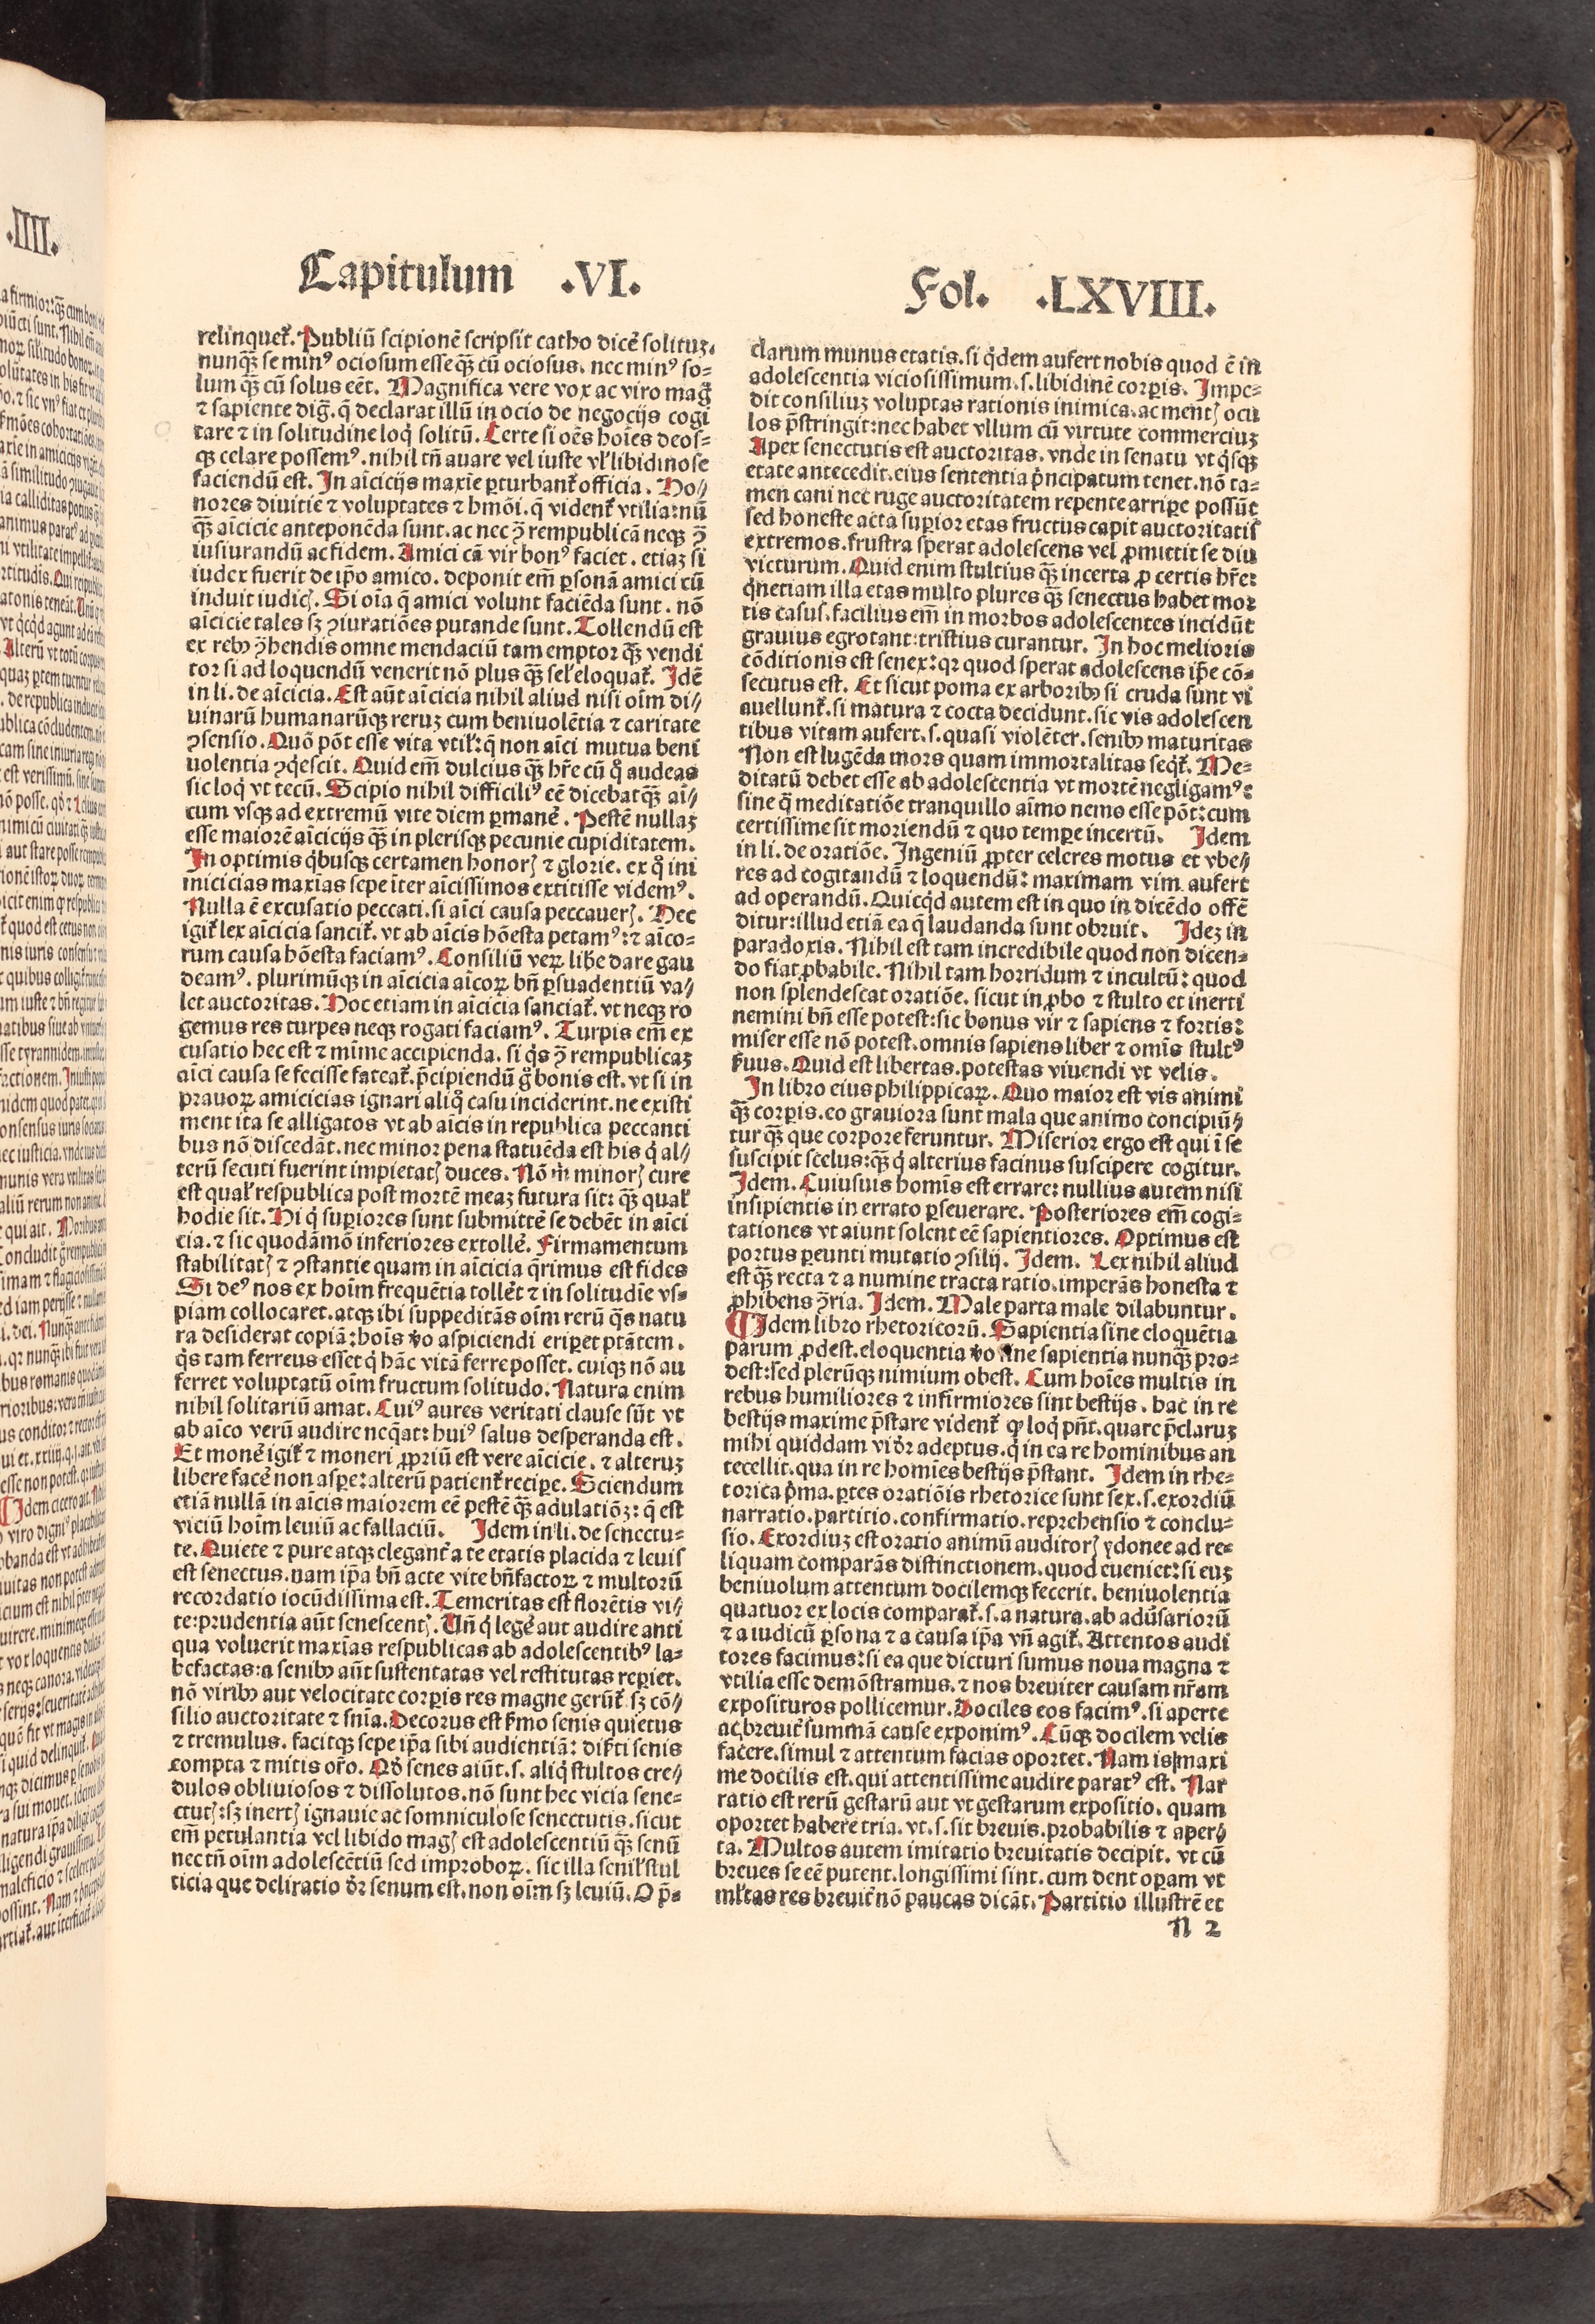 Capitulum .VI.
Fol. .LXVIII.
relinquet᷑. Publiū scipionē scripsit catho dicē solituꝫ.
nunqᷓꝫ se minꝰ ociosum esse qᷓꝫ cū ociosus. nec minꝰ so⸗
lum qᷓꝫ cū solus eēt. Magnifica vere vox ac viro mag̊
⁊ sapiente dig̃. q̄ declarat illū in ocio de negocijs cogi
tare ⁊ in solitudine loq̇ solitū. Certe si oēs hoīes deos⸗
qꝫ celare possemꝰ. nihil tn̄ auare vel iuste vl̓ libidinose
faciendū est. In aīcicijs maxīe ꝑturbant᷑ officia. Ho⸗
nores diuitie ⁊ voluptates ⁊ hmōi. q̄ vident᷑ vtilia: nū
qᷓꝫ aīcicie anteponēda sunt. ac nec ꝯ̄ rempublicā neqꝫ ꝯ̄
iusiurandū ac fidem. Amici cā vir bonꝰ faciet. etiaꝫ si
iudex fuerit de ip̄o amico. deponit em̄ ꝑsonā amici cū
induit iudicꝭ. Si oīa q̄ amici volunt faciēda sunt. nō
aīcicie tales sꝫ ꝯiuratiōes putande sunt. Tollendū est
ex rebꝰ ꝯ̄hendis omne mendaciū tam emptor qᷓꝫ vendi
tor si ad loquendū venerit nō plus qᷓꝫ sel̓ eloquat᷑. Idē
in li. de aīcicia. Est aūt aīcicia nihil aliud nisi oīm di⸗
uinarū humanarūqꝫ reruꝫ cum beniuolētia ⁊ caritate
ꝯsensio. Quō pōt esse vita vtil᷑: q̄ non aīci mutua beni
uolentia ꝯq̇escit. Quid em̄ dulcius qᷓꝫ hr̄e cū q̊ audeas
sic loq̇ vt tecū. Scipio nihil difficiliꝰ eē dicebat qᷓꝫ aī⸗
cum vsqꝫ ad extremū vite diem ꝑmanē. Pestē nullaꝫ
esse maiorē aīcicijs qᷓꝫ in plerisqꝫ pecunie cupiditatem.
In optimis q̇busqꝫ certamen honorꝭ ⁊ glorie. ex q̊ ini
micicias maxīas sepe īter aīcissimos extitisse videmꝰ.
Nulla ē excusatio peccati. si aīci causa peccauerꝭ. Hec
igit᷑ lex aīcicia sancit᷑. vt ab aīcis hōesta petamꝰ: ⁊ aīco⸗
rum causa hōesta faciamꝰ. Consiliū veꝝ libe dare gau
deamꝰ. plurimūqꝫ in aīcicia aīcoꝝ bn̄ ꝑsuadentiū va⸗
let auctoritas. Hoc etiam in aīcicia sanciat᷑. vt neqꝫ ro
gemus res turpes neqꝫ rogati faciamꝰ. Turpis em̄ ex
cusatio hec est ⁊ mīme accipienda. si q̇s ꝯ̄ rempublicaꝫ
aīci causa se fecisse fateat᷑. p̄cipiendū g̊ bonis est. vt si in
prauoꝝ amicicias ignari aliq̊ casu inciderint. ne existi
ment ita se alligatos vt ab aīcis in republica peccanti
bus nō discedāt. nec minor pena statuēda est his q̇ al⸗
terū secuti fuerint impietatꝭ duces. Nō m̄ minorꝭ cure
est qual᷑ respublica post mortē meaꝫ futura sit: qᷓꝫ qual᷑
hodie sit. Hi q̇ suꝑiores sunt submittē se debēt in aīci
cia. ⁊ sic quodāmō inferiores extollē. Firmamentum
stabilitatꝭ ⁊ ꝯstantie quam in aīcicia q̄rimus est fides
Si deꝰ nos ex hoīm frequētia tollēt ⁊ in solitudīe vs⸗
piam collocaret. atqꝫ ibi suppeditās oīm rerū q̇s natu
ra desiderat copiā: hoīs v̊o aspiciendi eripet ptātem.
q̇s tam ferreus esset q̇ hāc vitā ferre posset. cuiqꝫ nō au
ferret voluptatū oīm fructum solitudo. Natura enim
nihil solitariū amat. Cuiꝰ aures veritati clause sūt vt
ab aīco verū audire neq̄at: huiꝰ salus desperanda est.
Et monē igit᷑ ⁊ moneri ꝓpriū est vere aīcicie. ⁊ alteruꝫ
libere facē non aspe: alterū patient᷑ reciꝑe. Sciendum
etiā nullā in aīcis maiorem eē pestē qᷓꝫ adulatiōꝫ: q̄ est
viciū hoīm leuiū ac fallaciū. Idem in li. de senectu⸗
te. Quiete ⁊ pure atqꝫ elegant᷑ a te etatis placida ⁊ leuis
est senectus. nam ip̄a bn̄ acte vite bn̄factoꝝ ⁊ multorū
recordatio iocūdissima est. Temeritas est florētis vi⸗
te: prudentia aūt senescentꝭ. Un̄ q̇ legē aut audire anti
qua voluerit maxīas respublicas ab adolescentibꝰ la⸗
befactas: a senibꝰ aūt sustentatas vel restitutas reꝑiet.
nō viribꝰ aut velocitate corꝑis res magne gerūt᷑ sꝫ cō⸗
silio auctoritate ⁊ snīa. Decorus est s̓mo senis quietus
⁊ tremulus. facitqꝫ sepe ip̄a sibi audientiā: dis̓ti senis
compta ⁊ mitis or̄o. Qd̓ senes aiūt. s. aliq̇ stultos cre⸗
dulos obliuiosos ⁊ dissolutos. nō sunt hec vicia sene⸗
ctutꝭ: sꝫ inertꝭ ignauie ac somniculose senectutis. sicut
em̄ petulantia vel libido magꝭ est adolescentiū qᷓꝫ senū
nec tn̄ oīm adolescētiū sed improboꝝ. sic illa senil᷑ stul
ticia que deliratio dr̄ senum est. non oīm sꝫ leuiū. O p̄⸗
clarum munus etatis. si q̇dem aufert nobis quod ē in
adolescentia viciosissimum. s. libidinē corꝑis. Impe⸗
dit consiliuꝫ voluptas rationis inimica. ac mentꝭ ocu
los p̄stringit: nec habet vllum cū virtute commerciuꝫ
Apex senectutis est auctoritas. vnde in senatu vt q̇sqꝫ
etate antecedit. eius sententia ṗncipatum tenet. nō ta⸗
men cani nec ruge auctoritatem repente arriꝑe possūt
sed honeste acta suꝑior etas fructus capit auctoritatis
extremos. frustra sperat adolescens vel ꝓmittit se diu
victurum. Quid enim stultius qᷓꝫ incerta ꝓ certis hr̄e:
q̇netiam illa etas multo plures qᷓꝫ senectus habet mor
tis casus. facilius em̄ in morbos adolescentes incidūt
grauius egrotant: tristius curantur. In hoc melioris
cōditionis est senex: qꝛ quod sperat adolescens ip̄e cō⸗
secutus est. Et sicut poma ex arboribꝰ si cruda sunt vi
auellunt᷑. si matura ⁊ cocta decidunt. sic vis adolescen
tibus vitam aufert. s. quasi violēter. senibꝰ maturitas
Non est lugēda mors quam immortalitas seq̇t᷑. Me⸗
ditatū debet esse ab adolescentia vt mortē negligamꝰ:
sine q̄ meditatiōe tranquillo aīmo nemo esse pōt: cum
certissime sit moriendū ⁊ quo tempe incertū. Idem
in li. de oratiōe. Ingeniū ꝓpter celeres motus et vbe⸗
res ad cogitandū ⁊ loquendū: maximam vim aufert
ad operandū. Quicq̇d autem est in quo in dicēdo offē
ditur: illud etiā ea q̄ laudanda sunt obruit. Ideꝫ in
paradoxis. Nihil est tam incredibile quod non dicen⸗
do fiat ꝓbabile. Nihil tam horridum ⁊ incultū: quod
non splendescat oratiōe. sicut in ꝓbo ⁊ stulto et inerti
nemini bn̄ esse potest: sic bonus vir ⁊ sapiens ⁊ fortis:
miser esse nō potest. omnis sapiens liber ⁊ omīs stultꝰ
s̓uus. Quid est libertas. potestas viuendi vt velis.
In libro eius philippicaꝝ. Quo maior est vis animi
qᷓꝫ corꝑis. eo grauiora sunt mala que animo concipiū⸗
tur qᷓꝫ que corpore feruntur. Miserior ergo est qui ī se
suscipit scelus: qᷓꝫ q̇ alterius facinus suscipere cogitur.
Idem. Cuiusuis homīs est errare: nullius autem nisi
insipientis in errato ꝑseuerare. Posteriores em̄ cogi⸗
tationes vt aiunt solent eē sapientiores. Optimus est
portus ꝑeunti mutatio ꝯsilij. Idem. Lex nihil aliud
est qᷓꝫ recta ⁊ a numine tracta ratio. imperās honesta ⁊
ꝓhibens ꝯ̄ria. Idem. Male parta male dilabuntur.
¶ Idem libro rhetoricorū. Sapientia sine eloquētia
parum ꝓdest. eloquentia v̊o sine sapientia nunqᷓꝫ pro⸗
dest: sed plerūqꝫ nimium obest. Cum hoīes multis in
rebus humiliores ⁊ infirmiores sint bestijs. hac in re
bestijs maxime p̄stare vident᷑ ꝙ loq̇ pn̄t. quare p̄claruꝫ
mihi quiddam vidr̄ adeptus. q̇ in ea re hominibus an
tecellit. qua in re homīes bestijs p̄stant. Idem in rhe⸗
torica ṗma. ꝑtes oratiōis rhetorice sunt sex. s. exordiū
narratio. partitio. confirmatio. reprehensio ⁊ conclu⸗
sio. Exordiuꝫ est oratio animū auditorꝭ ydonee ad re⸗
liquam comparās distinctionem. quod eueniet: si euꝫ
beniuolum attentum docilemqꝫ fecerit. beniuolentia
quatuor ex locis comparat᷑. s. a natura. ab adu̓sariorū
⁊ a iudicū ꝑsona ⁊ a causa ip̄a vn̄ agit᷑. Attentos audi
tores facimus: si ea que dicturi sumus noua magna ⁊
vtilia esse demōstramus. ⁊ nos breuiter causam nr̄am
exposituros pollicemur. Dociles eos facimꝰ. si aperte
ac breuit᷑ summā cause exponimꝰ. Cūqꝫ docilem velis
facere. simul ⁊ attentum facias oportet. Nam is maxi
me docilis est. qui attentissime audire paratꝰ est. Nar
ratio est rerū gestarū aut vt gestarum expositio. quam
oportet habere tria. vt. s. sit breuis. probabilis ⁊ aper⸗
ta. Multos autem imitatio breuitatis decipit. vt cū
breues se eē putent. longissimi sint. cum dent oꝑam vt
ml̓tas res breuit᷑ nō paucas dicāt. Partitio illustrē et
N 2